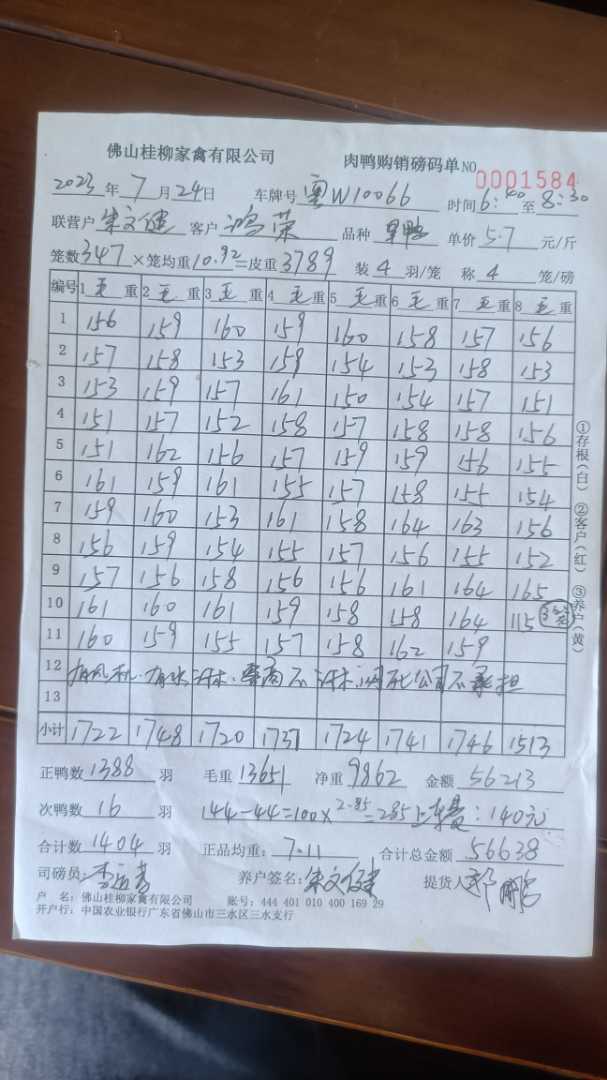 佛山桂柳家禽有限公司 肉鸭购销磅码单 NO 0001584
2023年7月24日 车牌号 粤W10066 时间6:40至8:30
联营户 朱文健 客户 鸿荣 品种 单价5.7元/斤
笼数347×笼均重10.92=皮重3789 装4羽/笼 称4笼/磅
编号 1毛重 2毛重 3毛重 4毛重 5毛重 6毛重 7毛重 8毛重
1 156 159 160 159 160 158 157 156
2 157 158 153 159 154 153 158 153
3 153 159 157 161 150 154 157 151
4 151 157 152 158 157 158 158 156
5 151 162 156 157 159 159 156 155
6 161 159 161 155 157 158 155 154
7 159 160 153 161 158 164 163 156
8 156 159 154 155 157 156 155 152
9 157 156 158 156 156 161 164 165
10 161 160 161 159 158 158 164 115 3笼
11 160 159 155 157 158 162 159
12 有风机.有水淋.不淋 死公司不承担
13
小计 1722 1748 1720 1737 1724 1741 1746 1513
正鸭数1388羽 毛重13651 净重9862 金额56213
次鸭数16羽 144-44=100×2.85=285 140元
合计数1404羽 正品均重:7.11 合计总金额56638
司磅员: 养户签名:朱文健 提货人 郭鹏
户 名:佛山桂柳家禽有限公司 账号:444 401 010 400 169 29
开户行:中国农业银行广东省佛山市三水区三水支行
①存根(白) ②客户(红) ③养户(黄)